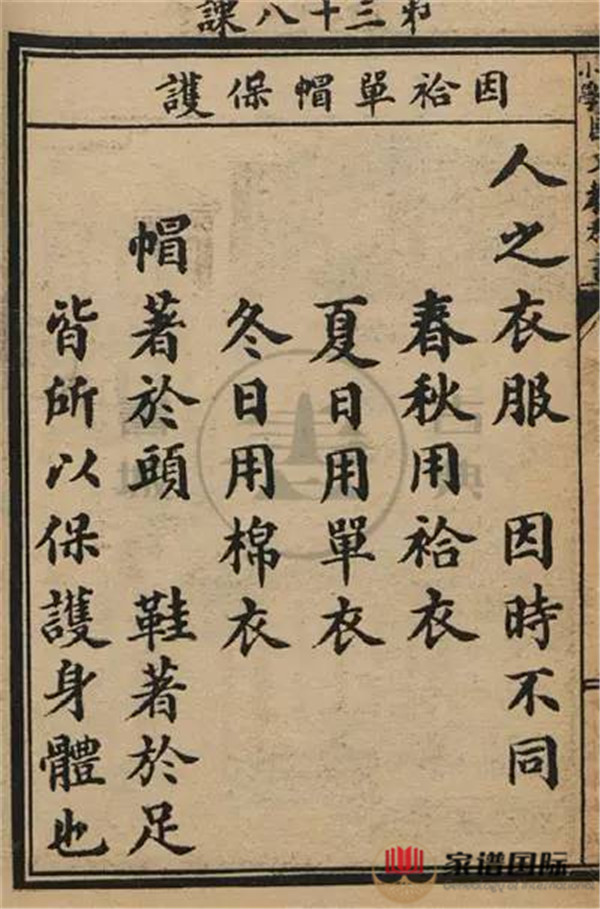 第三十八課
因袷單帽保護
人之衣服 因時不同
春秋用袷衣
夏日用單衣
冬日用棉衣
帽著於頭 鞋著於足
皆所以保護身體也
家谱国际
Genealogy of International